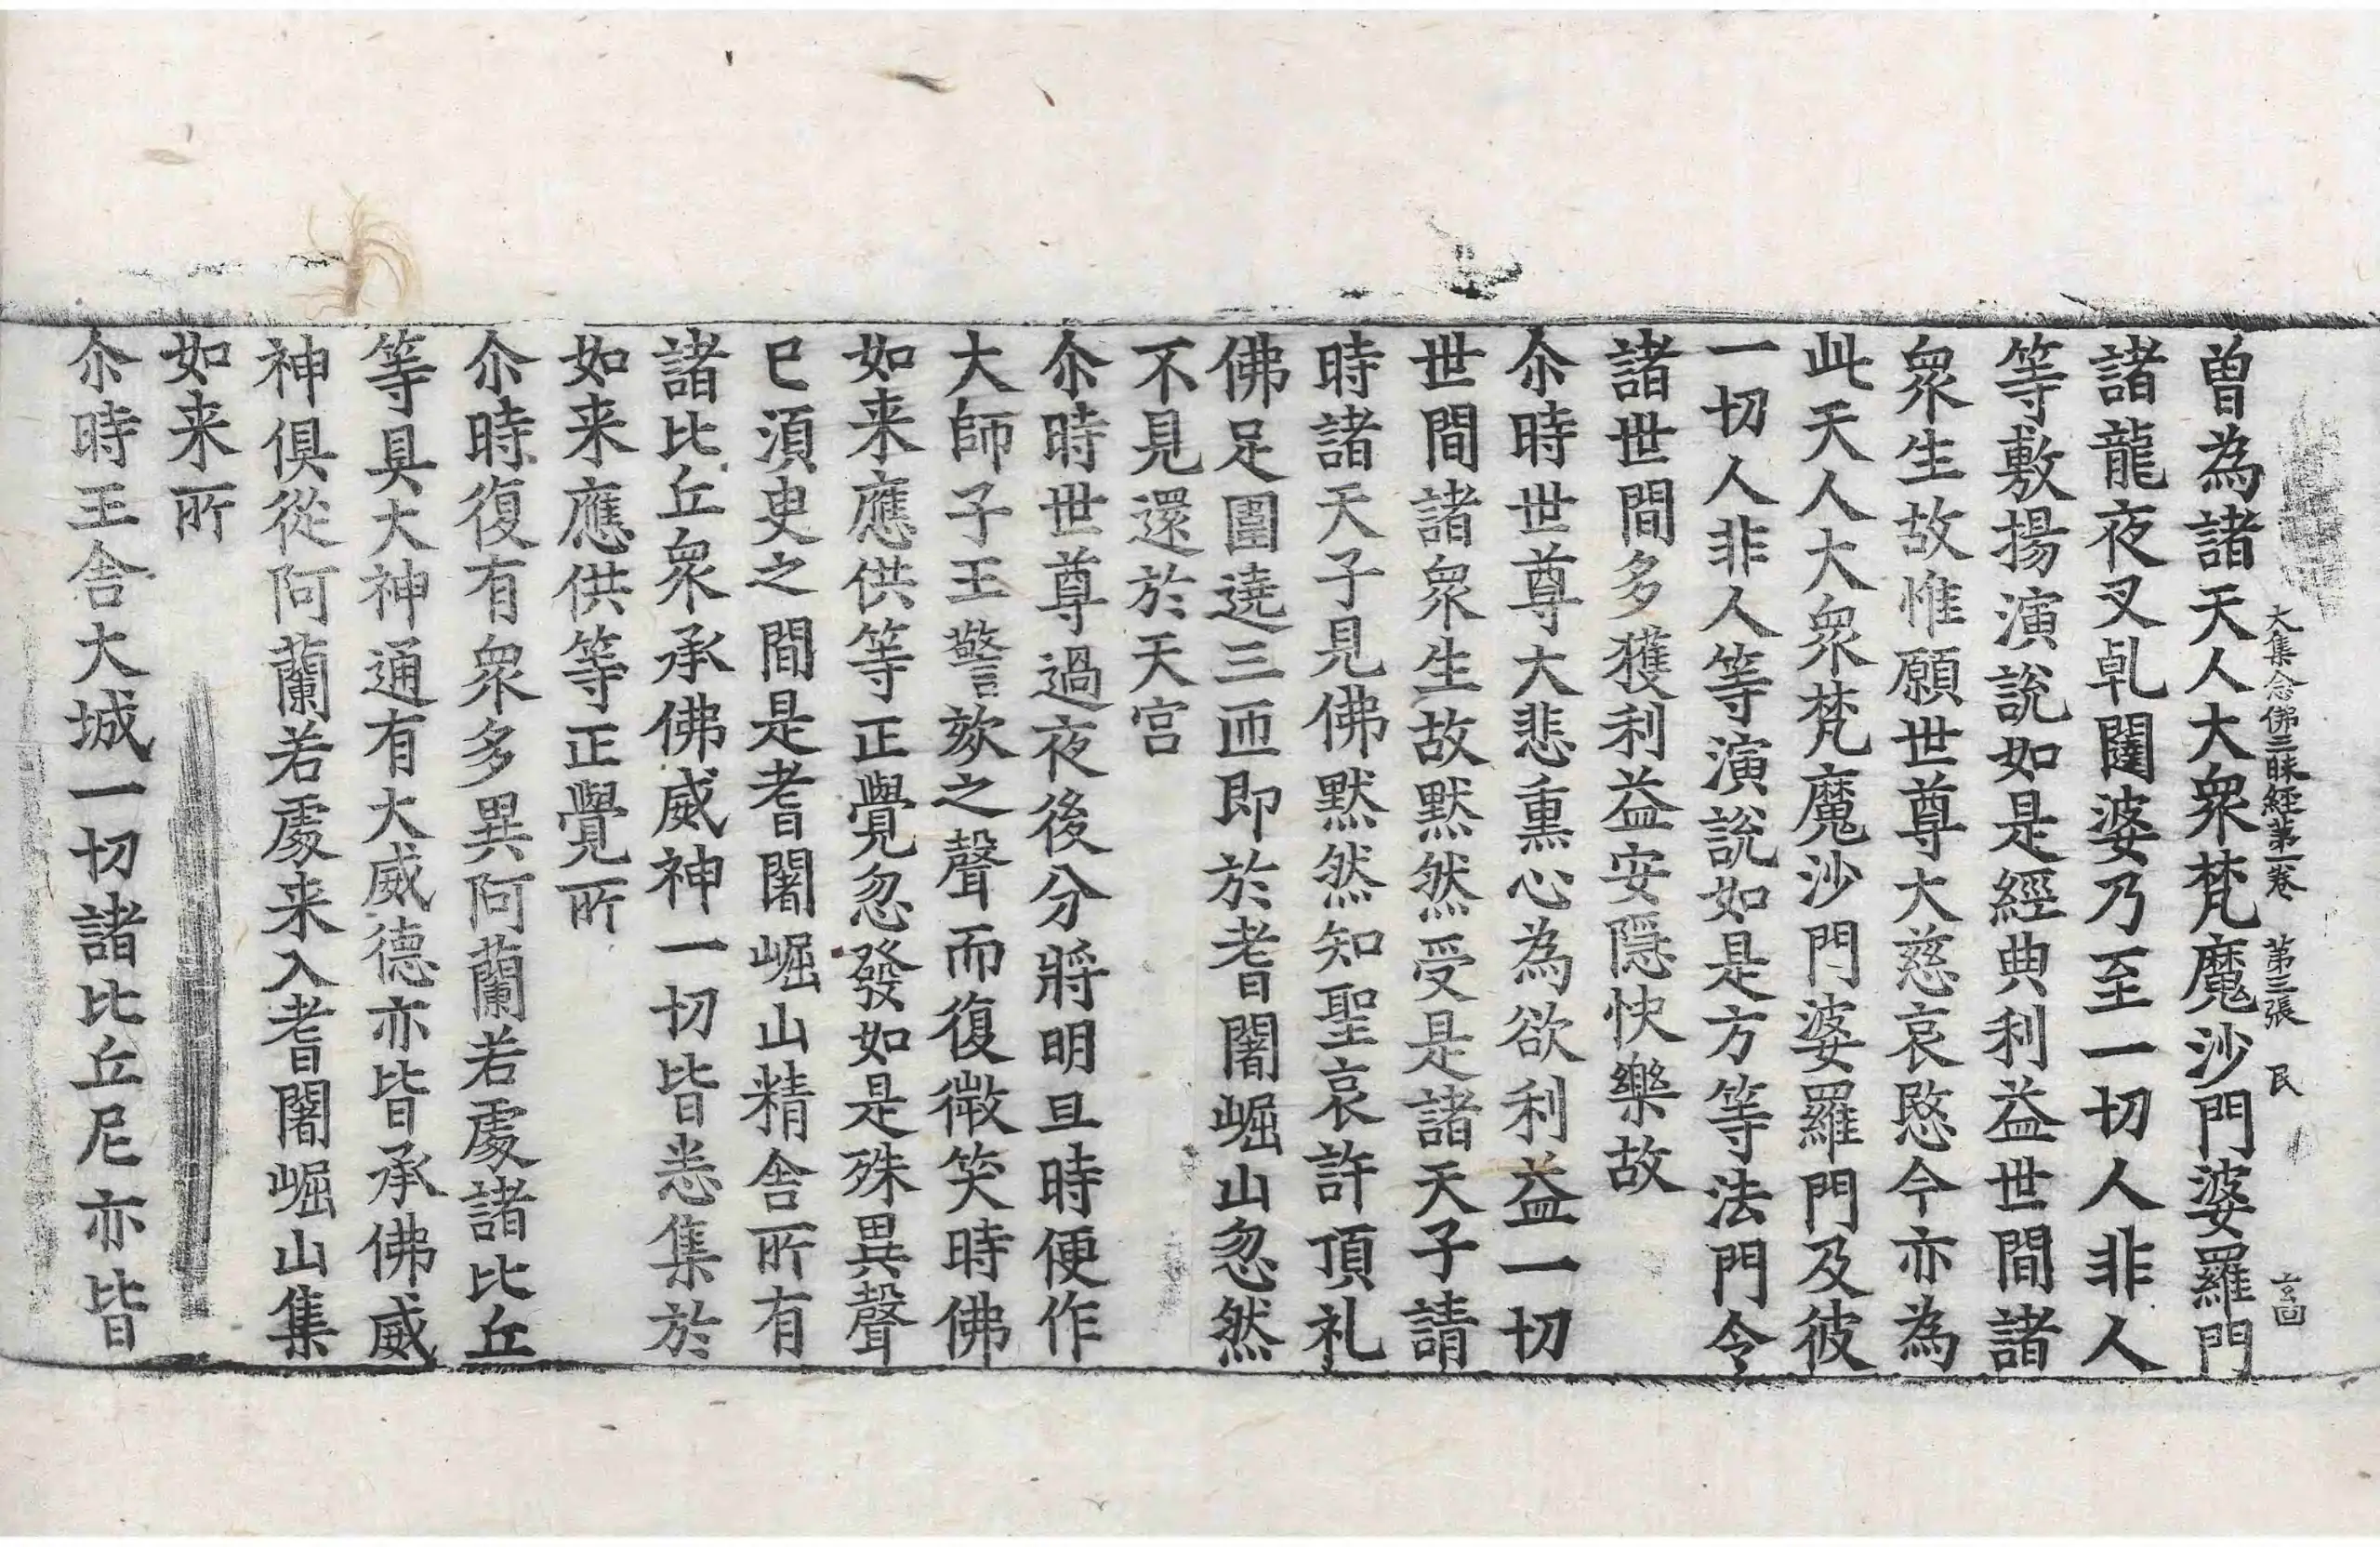 大集念佛三昧経第一卷　第三張　民　玄固
曽為諸天人大衆梵魔沙門婆羅門
諸龍夜叉乹闥婆乃至一切人非人
等敷揚演說如是經典利益世間諸
衆生故惟願世尊大慈哀愍今亦為
此天人大衆梵魔沙門婆羅門及彼
一切人非人等演說如是方等法門令
諸世間多獲利益安隠快樂故
尒時世尊大悲熏心為欲利益一切
世間諸衆生故默然受是諸天子請
時諸天子見佛默然知聖哀許頂礼
佛足圍遶三匝即於耆闍崛山忽然
不見還於天宮
尒時世尊過夜後分將明旦時便作
大師子王謦欬之聲而復微笑時佛
如来應供等正覺忽發如是殊異聲
巳須臾之間是耆闍崛山精舎所有
諸比丘衆承佛威神一切皆悉集於
如来應供等正覺所
尒時復有衆多異阿蘭若處諸比丘
等具大神通有大威德亦皆承佛威
神俱從阿蘭若處来入耆闍崛山集
如来所
尒時王舎大城一切諸比丘尼亦皆